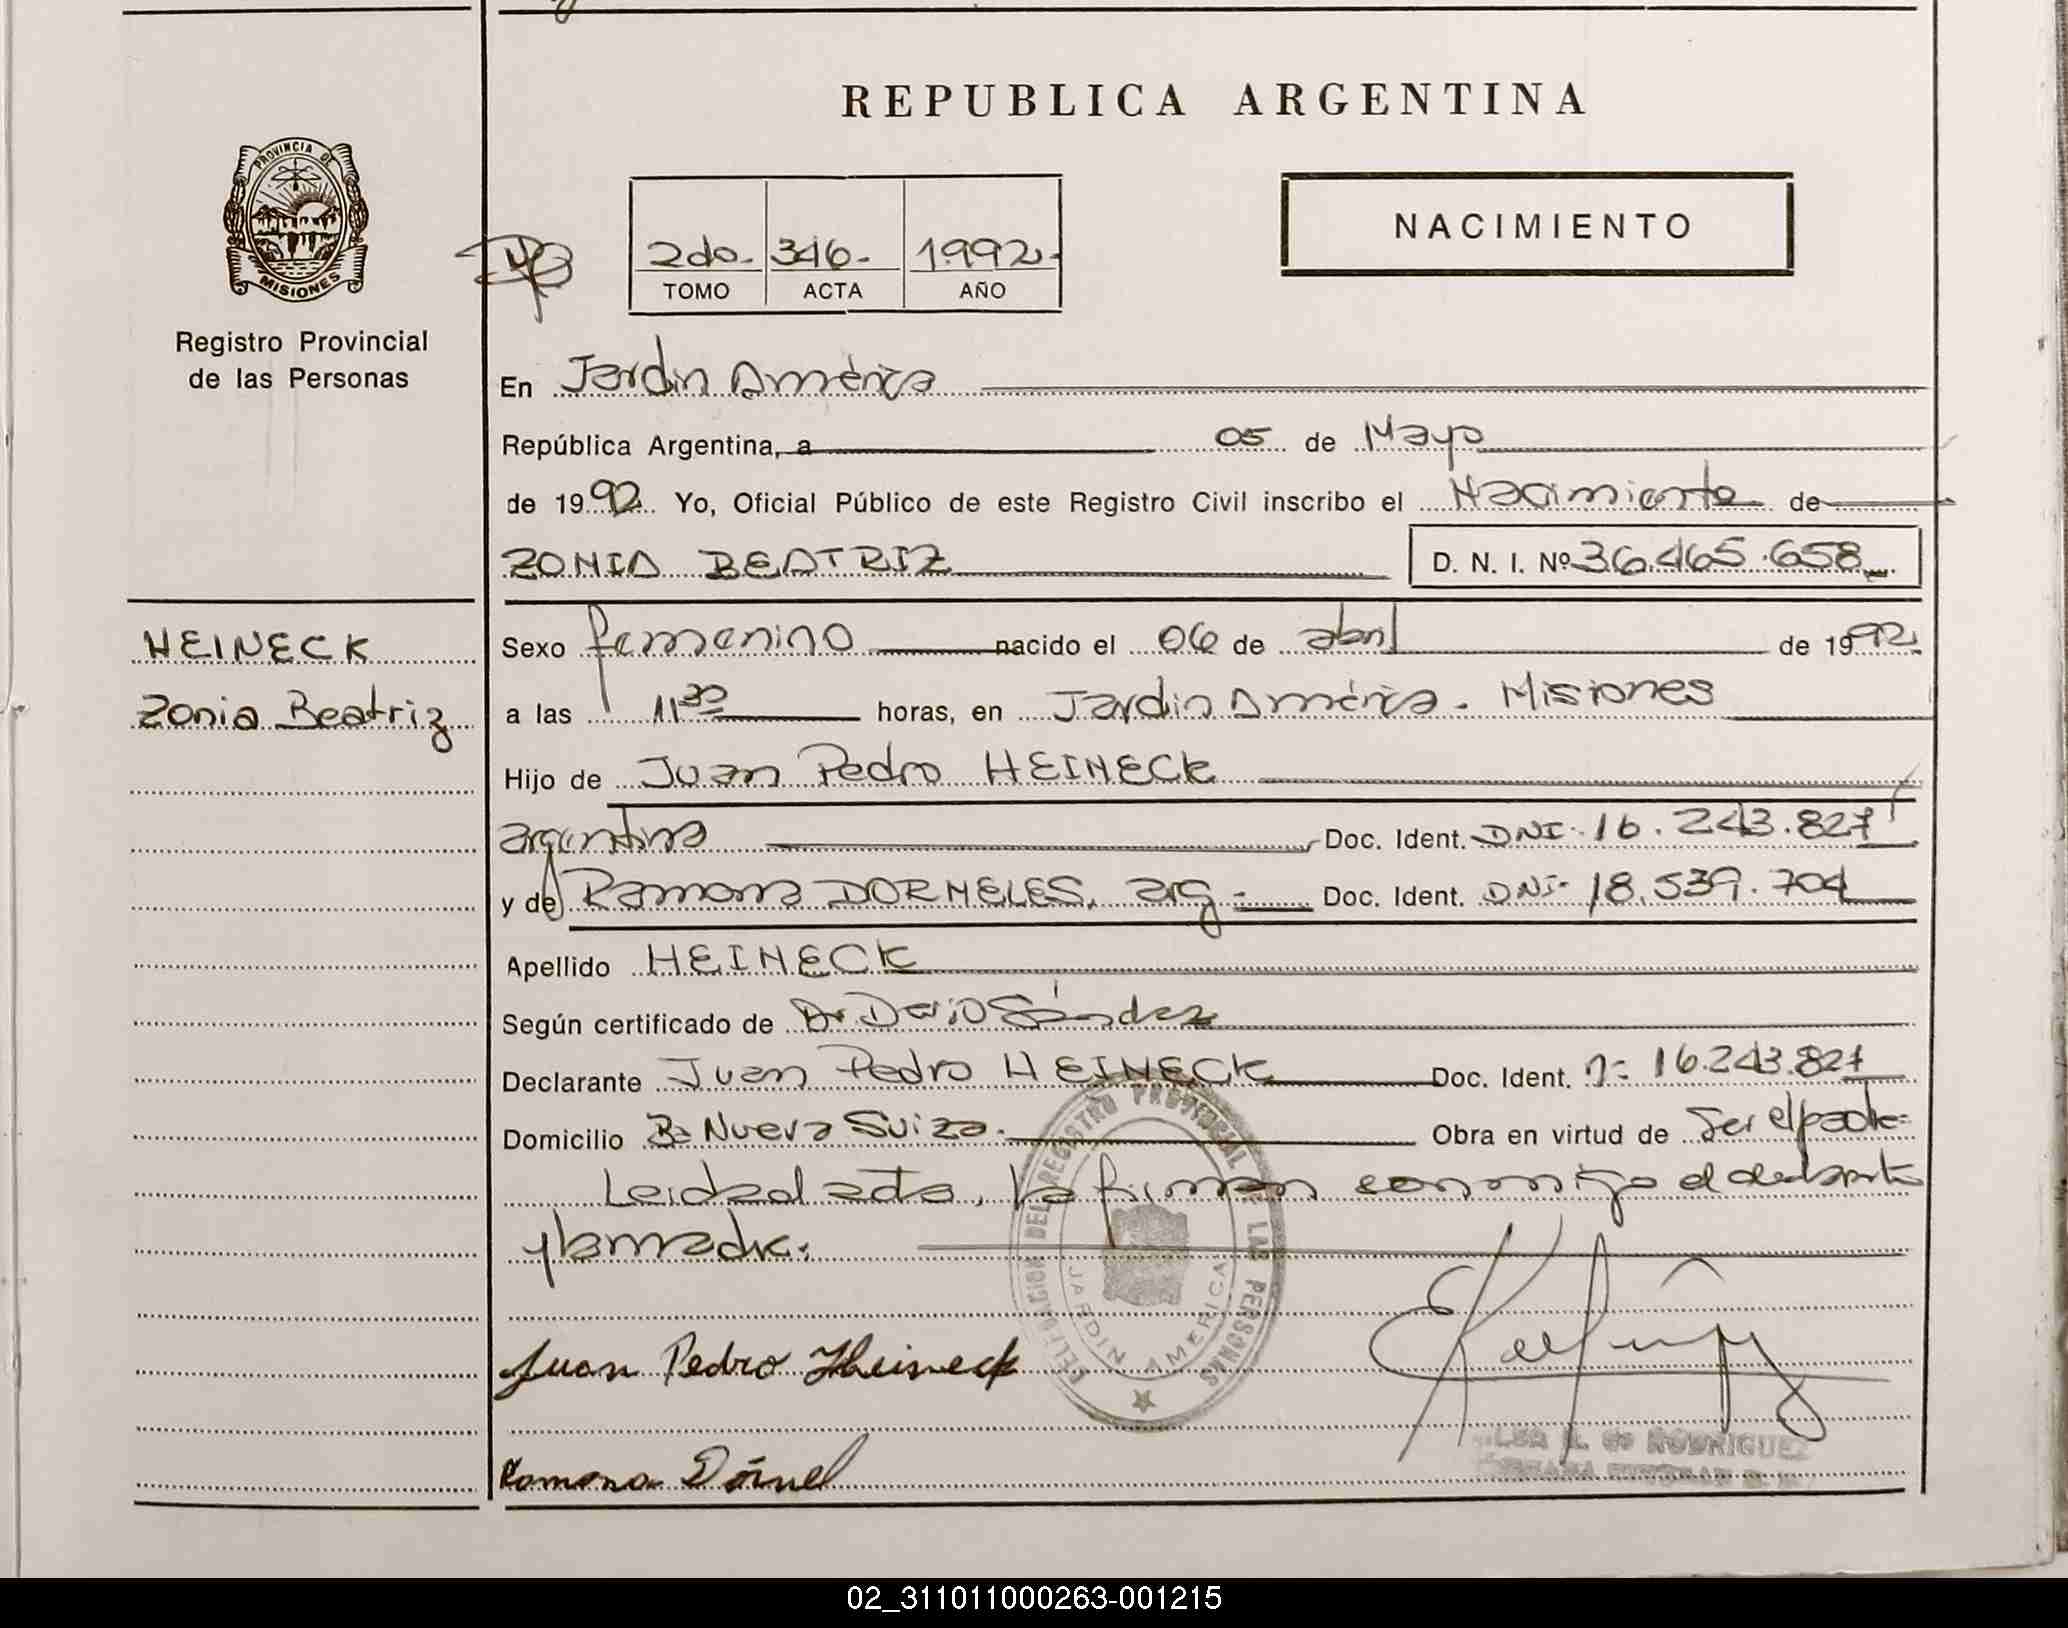 REPUBLICA ARGENTINA
PROVINCIA DE
MISIONES
Registro Provincial
de las Personas
2do. 346. 1992.
TOMO ACTA AÑO
NACIMIENTO
En Jardin América
República Argentina, a 05 de Mayo
de 1992. Yo, Oficial Público de este Registro Civil inscribo el Nacimiento de
ZONIA BEATRIZ D. N. I. Nº 36.465.658
HEINECK
Zonia Beatriz
Sexo femenino nacido el 06 de abril de 1992.
a las 11 30 horas, en Jardin América. Misiones
Hijo de Juan Pedro HEINECK
argentina Doc. Ident. DNI. 16.243.827
y de Ramona DORNELES, arg. Doc. Ident. DNI. 18.539.704
Apellido HEINECK
Según certificado de Dr Dario
Declarante Juan Pedro HEINECK Doc. Ident. n= 16.243.827
Domicilio Bº Nueva Suiza. Obra en virtud de Ser el padre=
Leida el acta, la firman conmigo el declarante
y la madre.
DEL REGISTRO PROVINCIAL DE LAS PERSONAS
JARDIN AMERICA
Juan Pedro Heineck
Ramona Dórnel
RODRIGUEZ